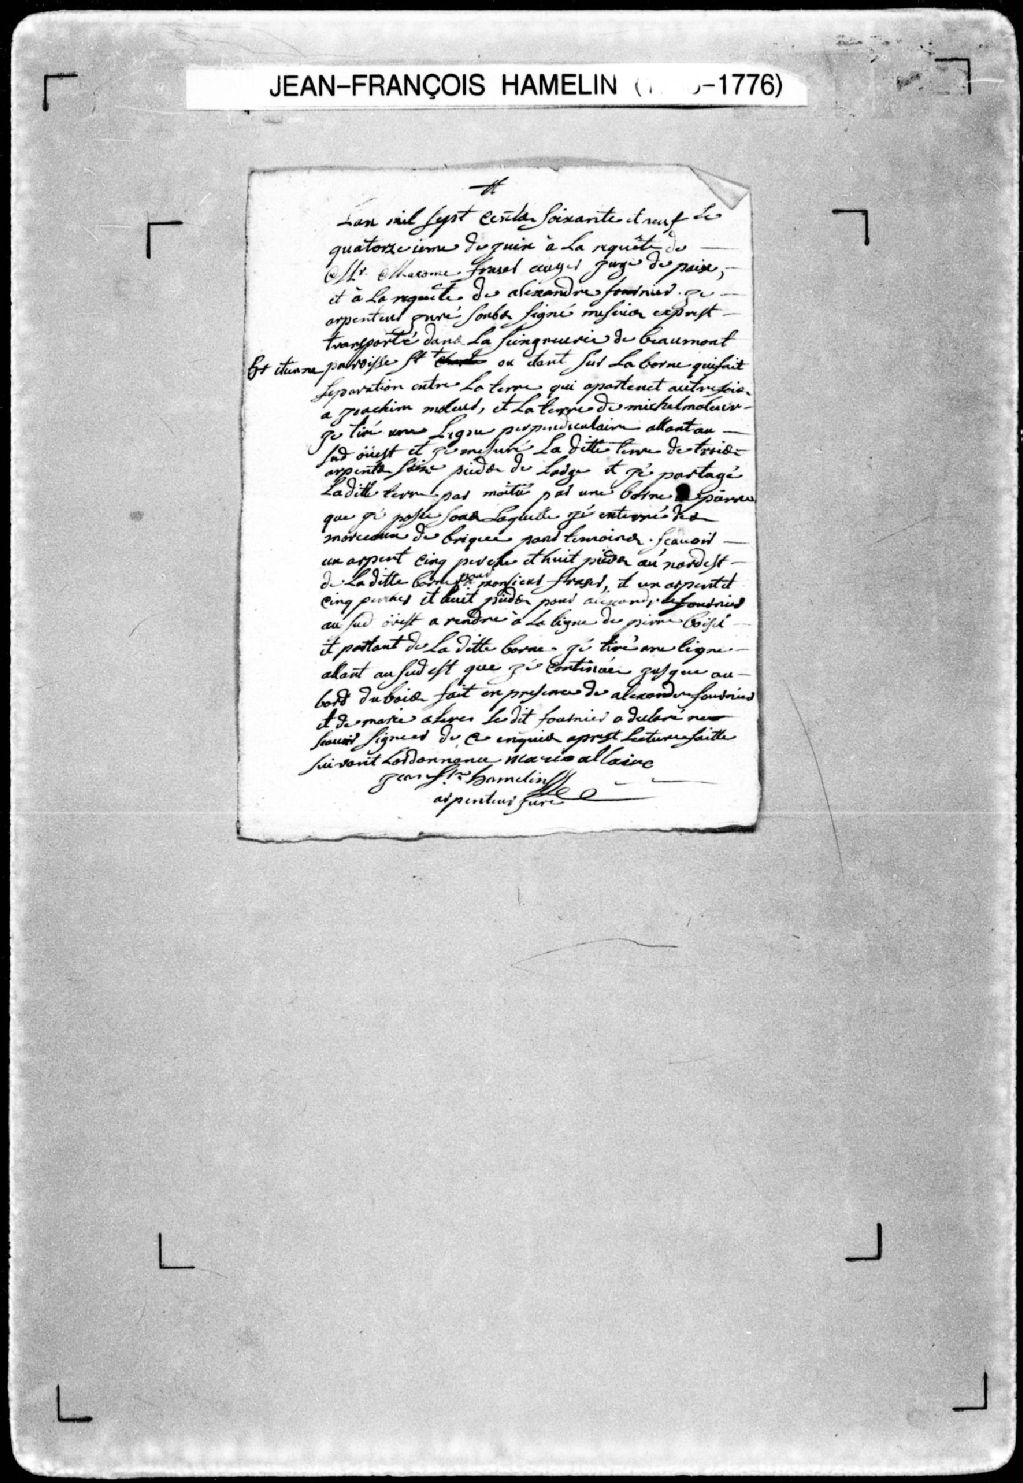 JEAN-FRANÇOIS HAMELIN (1   -1776)
Lan mil sept cents soixante et neuf le
quatorzieme de juin à la requête de
Mr. fraser ecuyer juge de paix,
et à la requête de alexandre fournier. je
arpenteur juré soubs signé me suis exprest
transporté dans la seingneurie de beaumont
St etienne paroisse St ou etant sur la borne qui fait
separation entre la terre qui apartenet autrefois
a joachim moleur, et la terre de michel moleur
je tiré une ligne perpendiculaire allant au
sud öuest et je mesuré la ditte terre de trois
arpents seize pieds de large et jé partagé
la ditte terre par moitié par une borne de pierre
que jé posé sous laquelle jé enterré des
morceaux de brique pour temoins. scavoir
un arpent cinq perches et huit pieds au nordest
de la ditte borne pour monsieur fraser, et un arpent et
cinq perches et huit pieds pour alexandre fournier
au sud öuest a rendre à la ligne de pierre
et partant de la ditte borne jé tiré une ligne
allant au sud est que jé continuée jusque au
bord du bois fait en presence de alexandre fournier
et de marie alere le dit fournier a declaré ne
scavoir signer de ce enquis aprest lecture faitte
suivant lordonnance marie allaire
jean frs hamelin
arpenteur juré